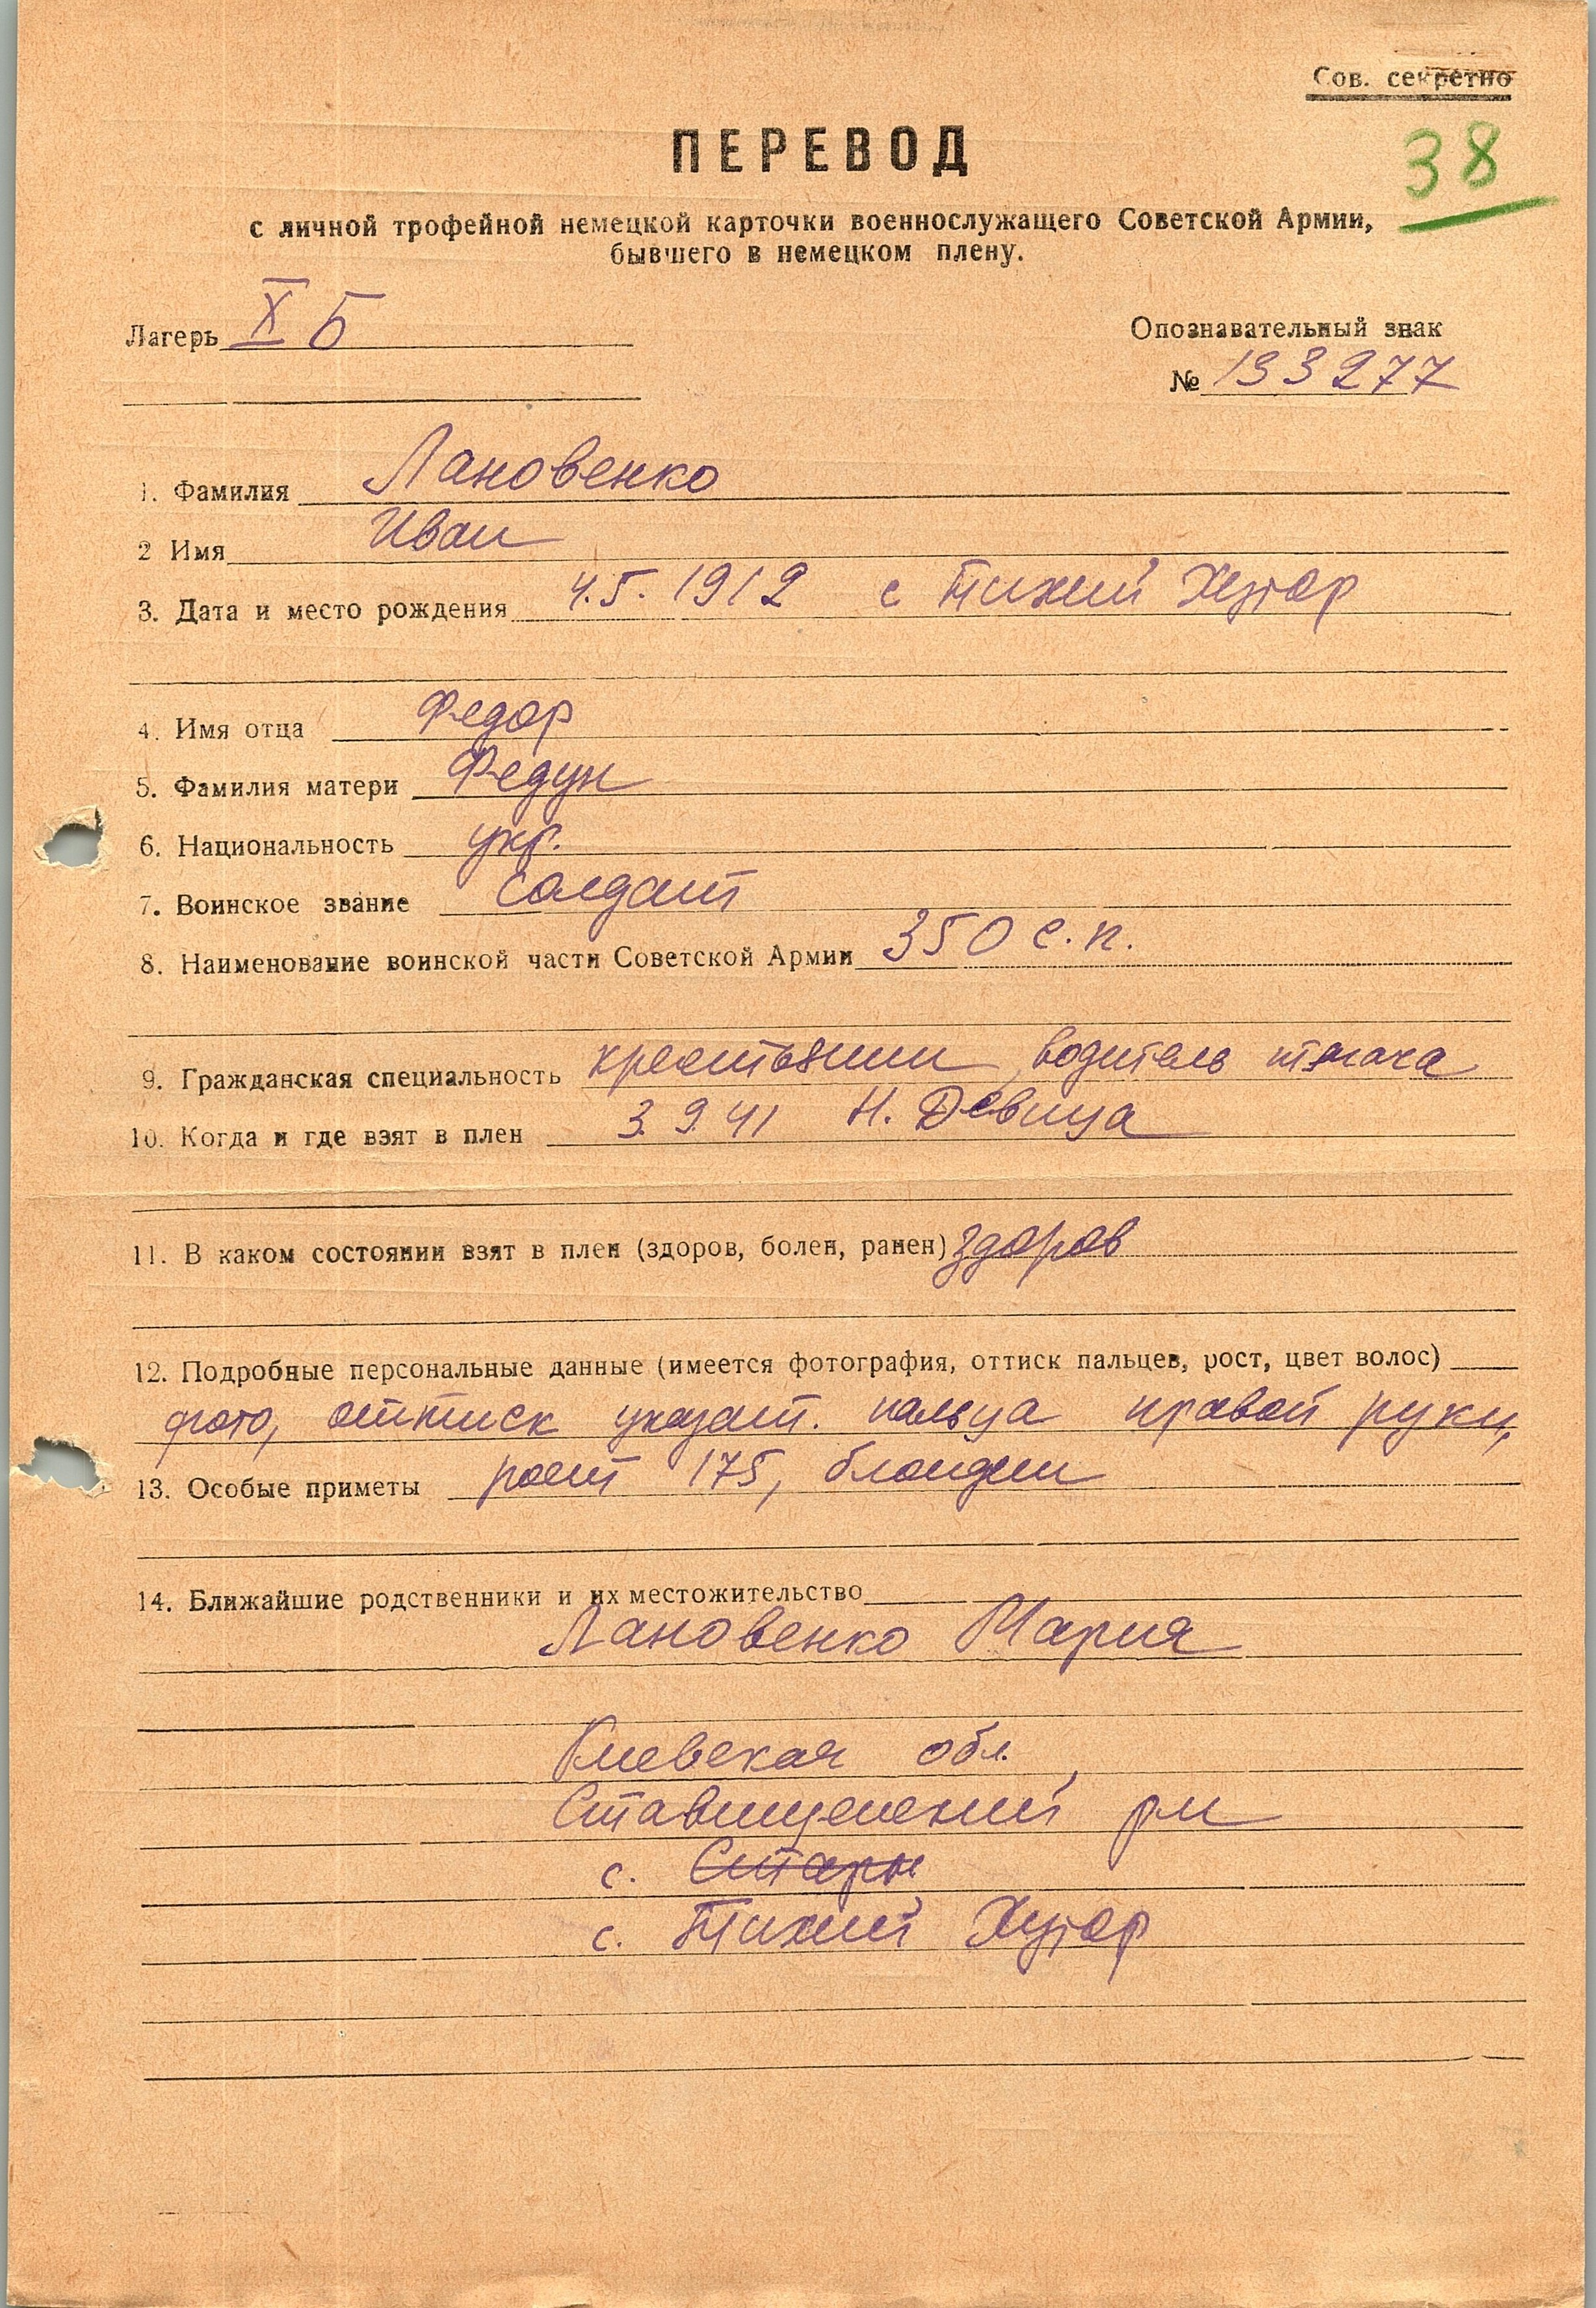 Сов. секретно
38
ПЕРЕВОД
с личной трофейной немецкой карточки военнослужащего Советской Армии,
бывшего в немецком плену.
Лагерь X Б
Опознавательный знак
№ 133277
1. Фамилия Лановенко
2 Имя Иван
3. Дата и место рождения 4.5.1912 с Тихий Хутор
4. Имя отца Федор
5. Фамилия матери Федун
6. Национальность укр.
7. Воинское звание солдат
8. Наименование воинской части Советской Армии 350 с.п.
9. Гражданская специальность крестьянин, водитель тягача
10. Когда и где взят в плен 3.9.41 Н. Девица
11. В каком состоянии взят в плен (здоров, болен, ранен) здоров
12. Подробные персональные данные (имеется фотография, оттиск пальцев, рост, цвет волос)
фото, оттиск указат. пальца правой руки,
13. Особые приметы рост 175, блондин
14. Ближайшие родственники и их местожительство
Лановенко Мария
Киевская обл.,
Ставищенский рн
с. Стары
с. Тихий Хутор